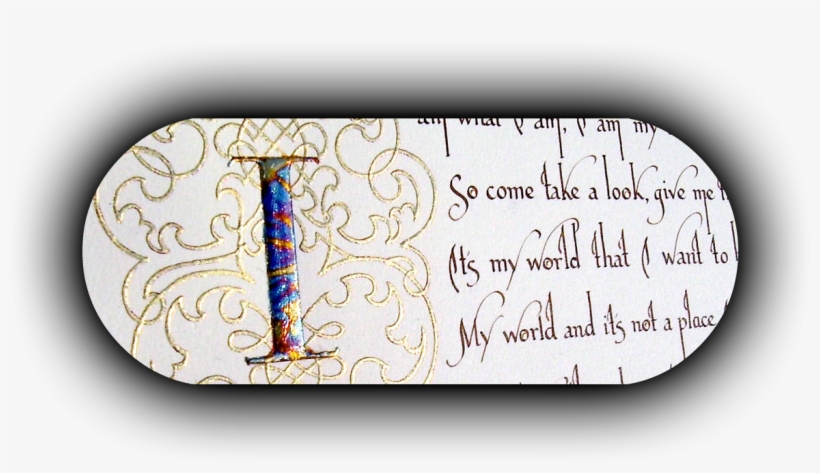 I
what I am, I am my
So come take a look, give me
It's my world that I want to
My world and it's not a place